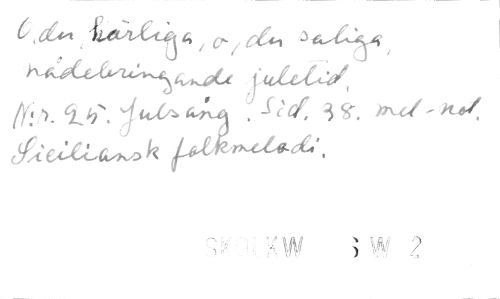 O, du härliga, o, du saliga,
nådebringande juletid.
N:r. 25. Julsång. Sid. 38. mel-not.
Siciliansk folkmelodi.
SKOLKW 6 W 2